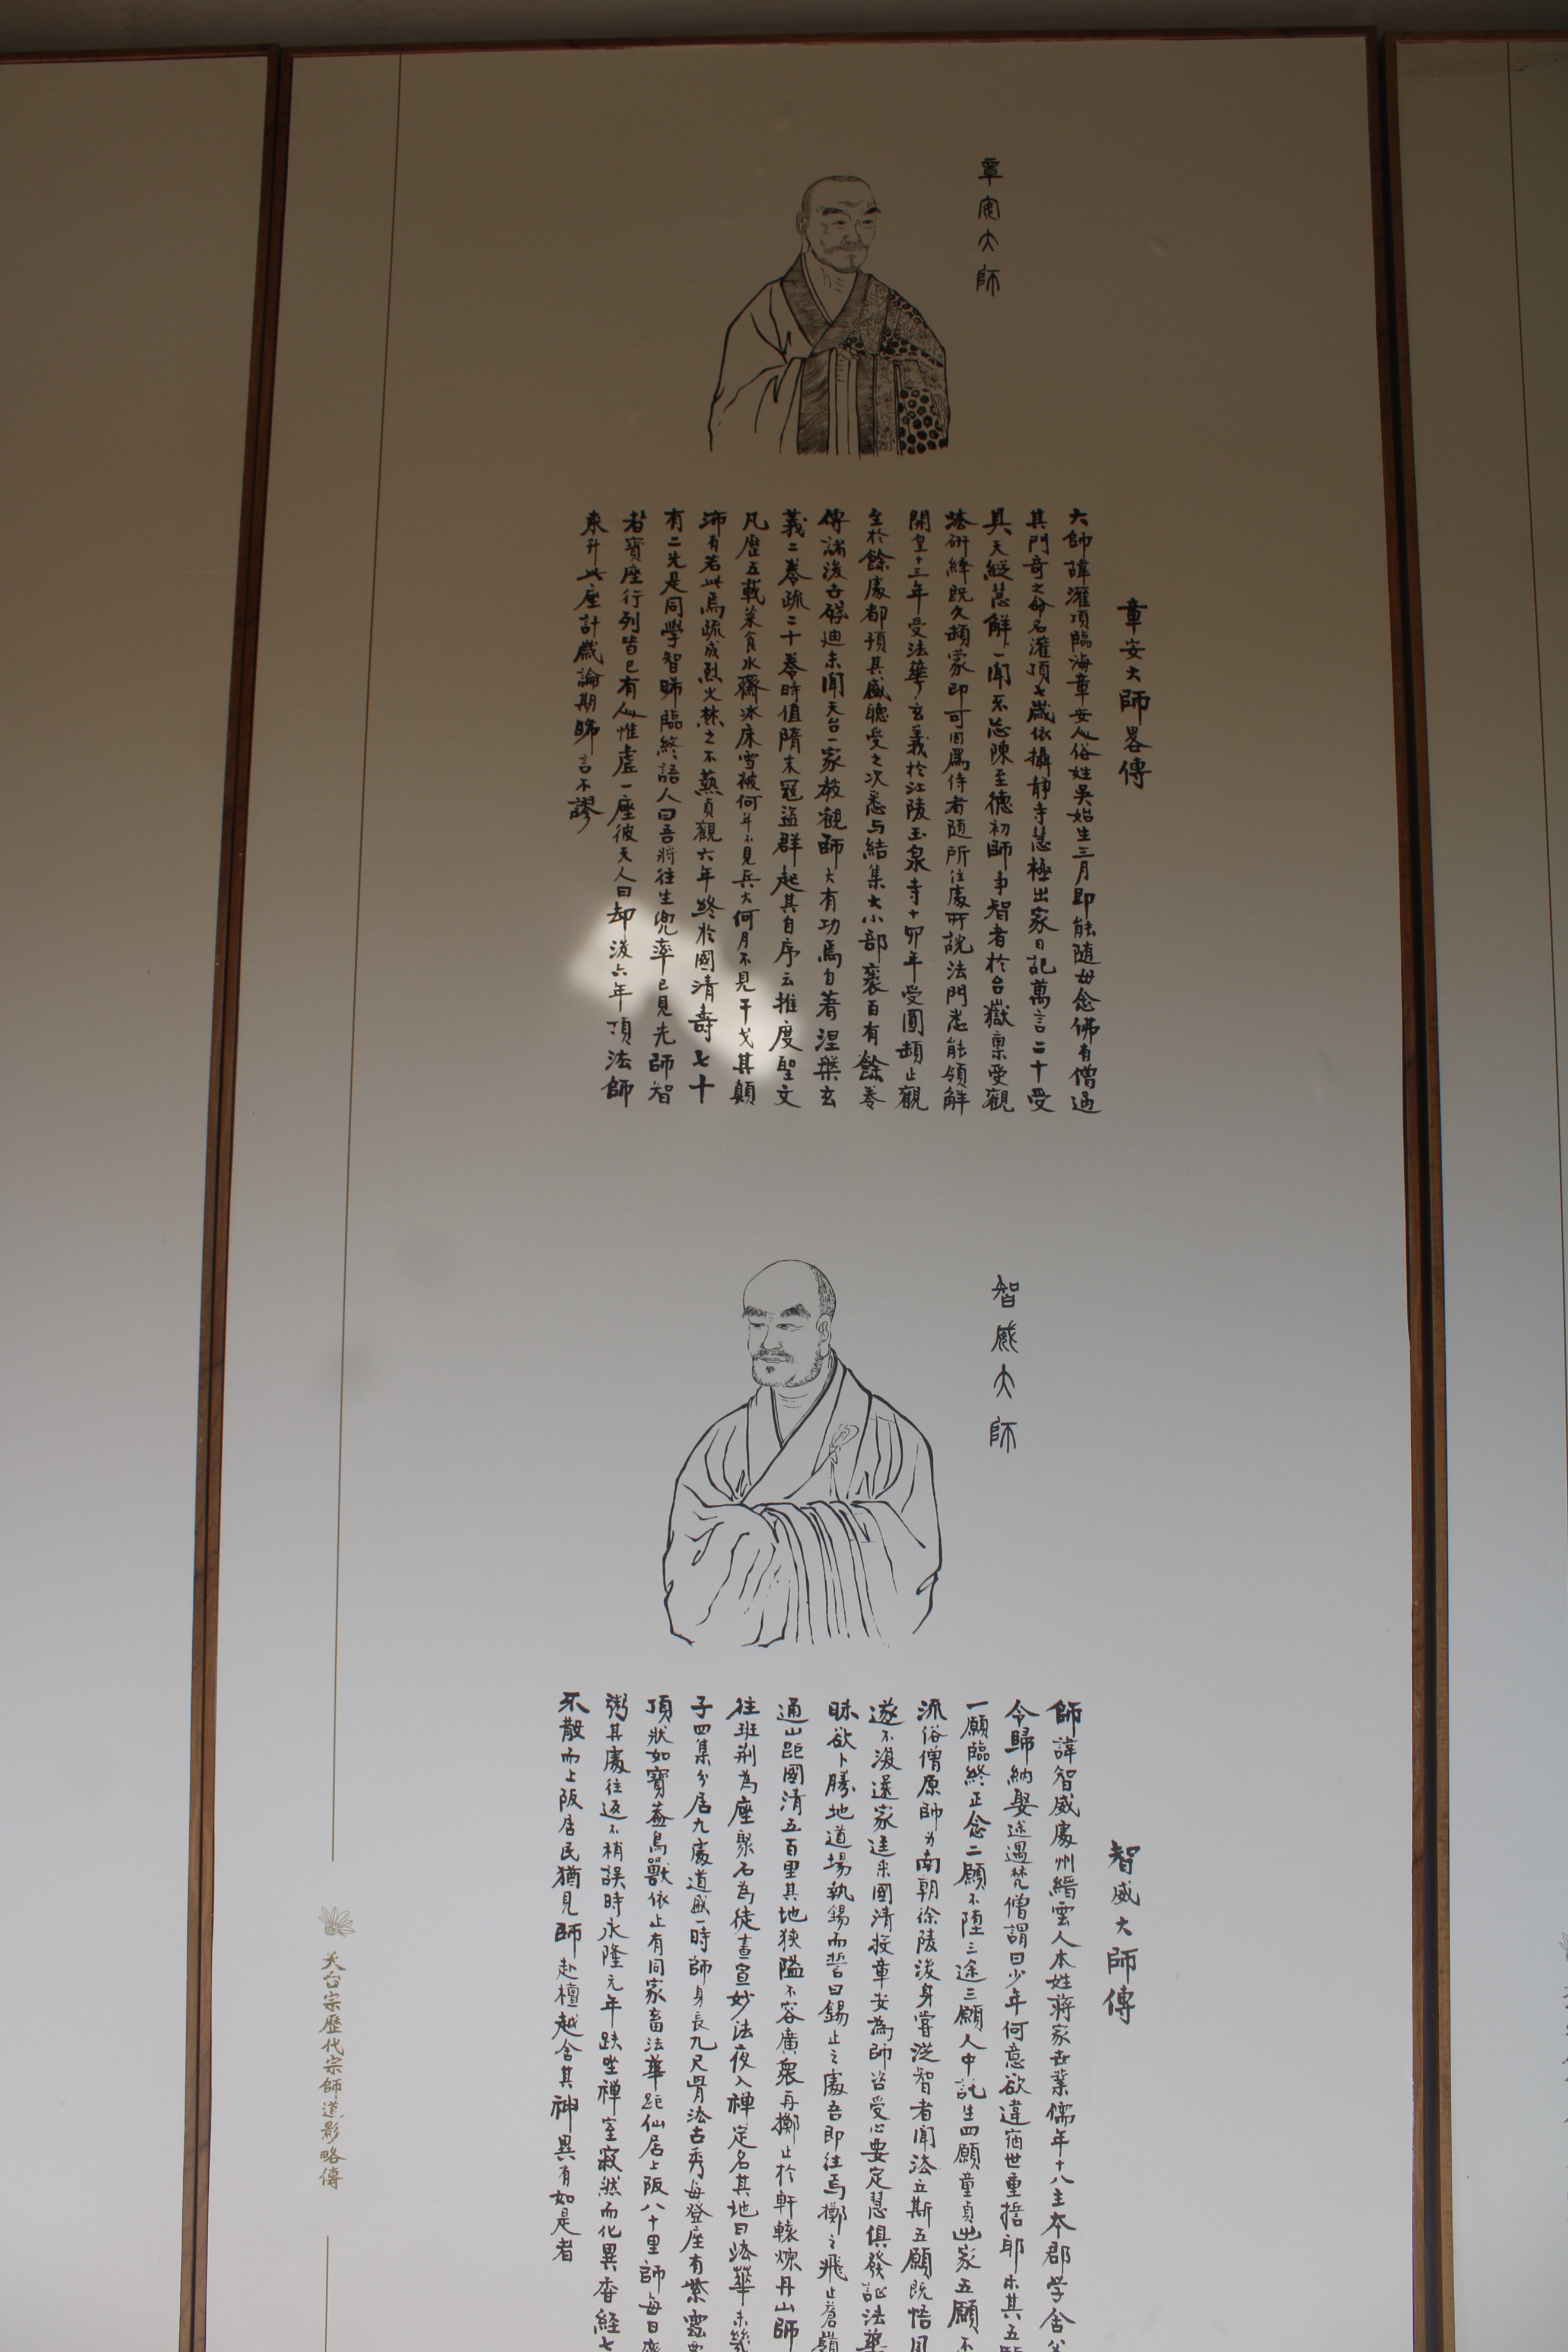 章安大師
章安大師畧傳
大師諱灌頂臨海章安人俗姓吳始生三月即能隨母念佛有僧過
其門奇之命名灌頂七歲依攝靜寺慧極出家日記萬言二十受
具天縱慧解一聞不忘陳至德初師事智者於台嶽稟受觀
法研繹既久頓蒙印可因爲侍者隨所住處所說法門悉能領解
開皇十三年受法華玄義於江陵玉泉寺十四年受圓頓止觀
至於餘處都預其盛聽受之次悉与結集大小部袠百有餘卷
傳諸後古啓迪未聞天台一家教觀師大有功焉自著涅槃玄
義二卷疏二十卷時值隋末冦盜群起其自序云推度聖文
凡歷五載菜食水齋冰床雪被何年不見兵火何月不見干戈其顛
沛有若此焉疏成烈火焚之不爇貞觀六年終於國清壽七十
有二先是同學智晞臨終語人曰吾將往生兜率已見先師智
者寶座行列皆已有人惟虛一座彼天人曰却後六年頂法師
來升此座計歲論期晞言不謬
智威大師
智威大師傳
師諱智威處州縉雲人本姓蔣家世業儒年十八主本郡学舍父
令歸納娶途遇梵僧謂曰少年何意欲違宿世重誓耶示其五
一願臨終正念二願不墮三途三願人中託生四願童貞出家五願不
流俗僧原師为南朝徐陵後身嘗從智者聞法立斯五願既悟
遂不復還家逕来國清投章安為師咨受心要定慧俱發証法華
昧欲卜勝地道場執錫而誓曰錫止之處吾即往焉擲之飛止蒼嶺
通山距國清五百里其地狹隘不容廣衆再擲止於軒轅煉丹山師
往班荆為座聚石為徒晝宣妙法夜入禅定名其地曰法華未幾
子四集分居九處道威一時師身長九尺骨法古秀每登座有紫雲
頂狀如寶蓋鳥獸依止有同家畜法華距仙居上阪八十里師每日齋
粥其處往返不稍誤時永隆元年趺坐禅室寂然而化異香経七
不散而上阪居民猶見師赴檀越舍其神異有如是者
天台宗歷代宗師道影略傳